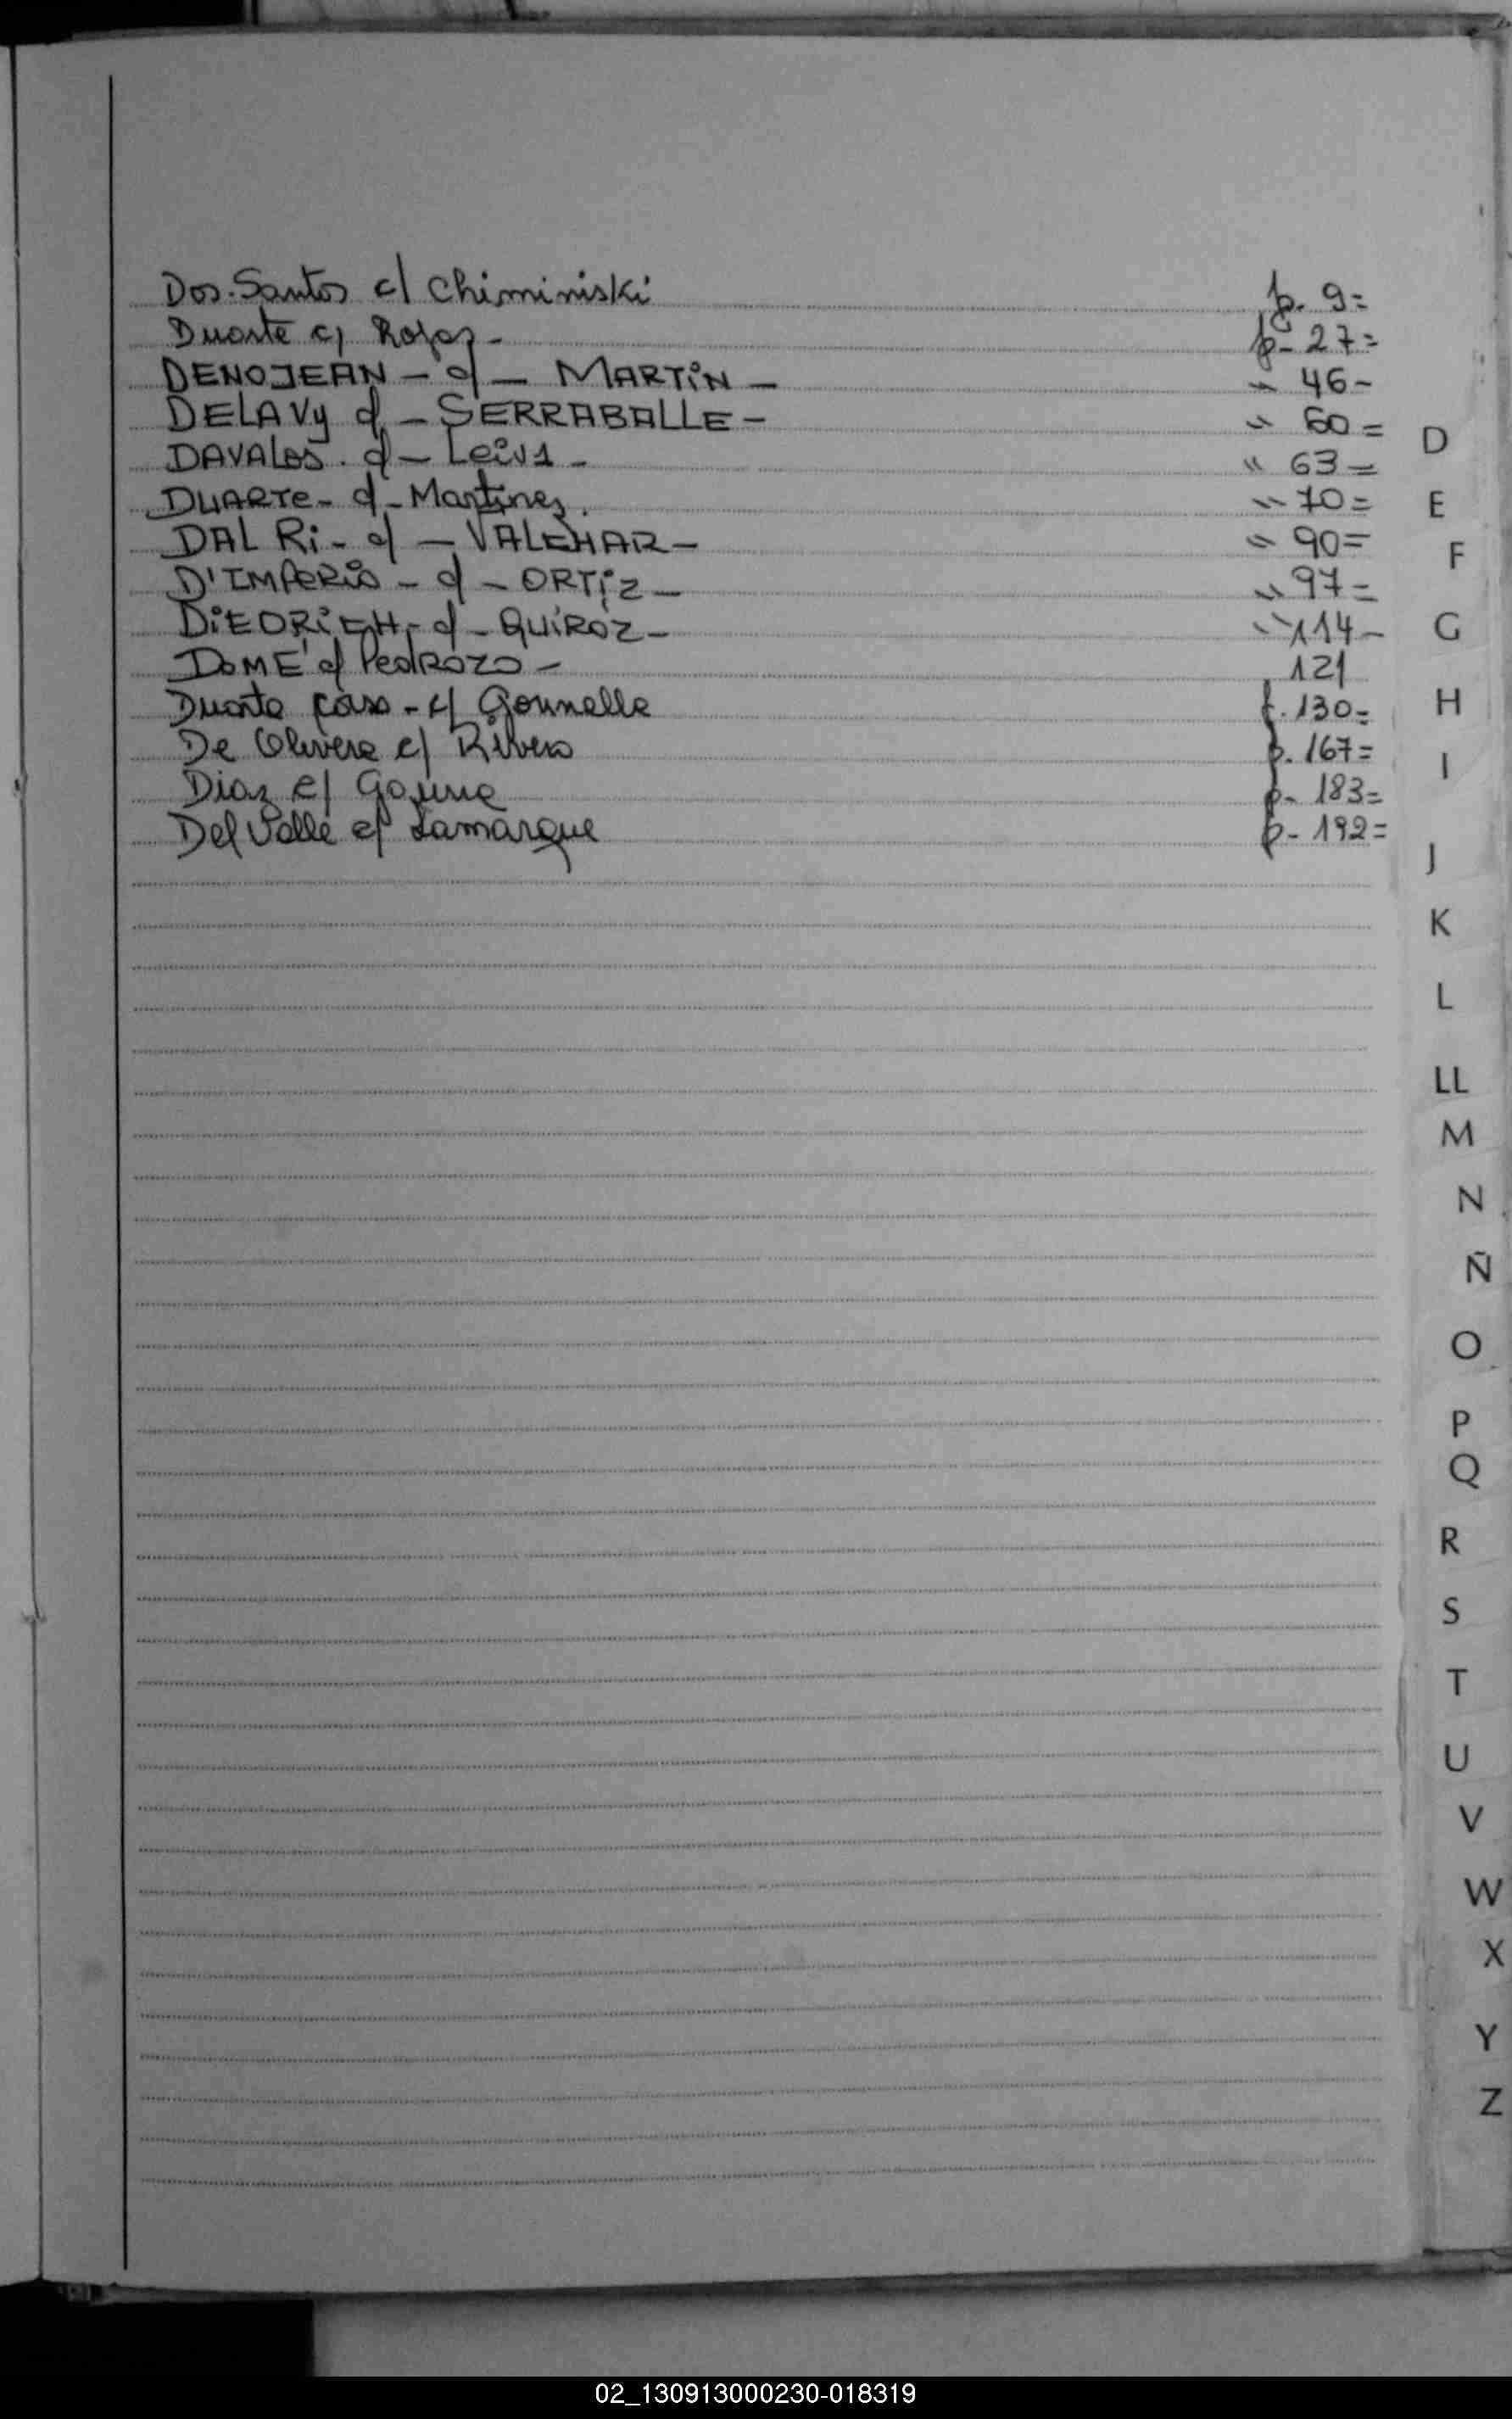 Dos. Santos c/ Chiminiski p. 9=
Duarte c/ Rojas - p- 27=
DENOJEAN - c/ - MARTiN - " 46-
DELAVy c/ - SERRABALLE - " 60=
DAVALos. c/ - Leiva - " 63=
DUARTe - c/ - Martinez. " 70=
DAL Ri - c/ - VALEHAR - " 90=
D'IMPeRio - c/ - ORTiZ - " 97=
DiEDRiCH - c/ - QUiROZ - " 114-
DoMÉ c/ PedROZO - 121
Duarte caso - c/ Gounelle f. 130=
De Olivera c/ Rivero p. 167=
Diaz c/ p- 183=
Del Valle c/ Lamarque p- 192=
D
E
F
G
H
I
J
K
L
LL
M
N
Ñ
O
P
Q
R
S
T
U
V
W
X
Y
Z
02_130913000230-018319